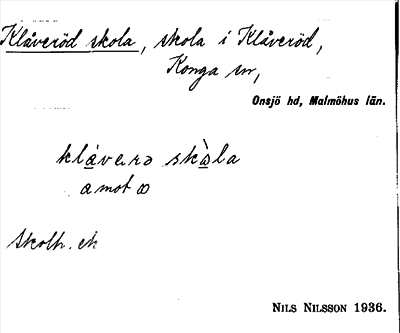 Klåveröd skola, skola i Klåveröd,
Konga sn,
Onsjö hd, Malmöhus län.
klávero skàla
a mot ω
Skolh. ek
NILS NILSSON 1936.